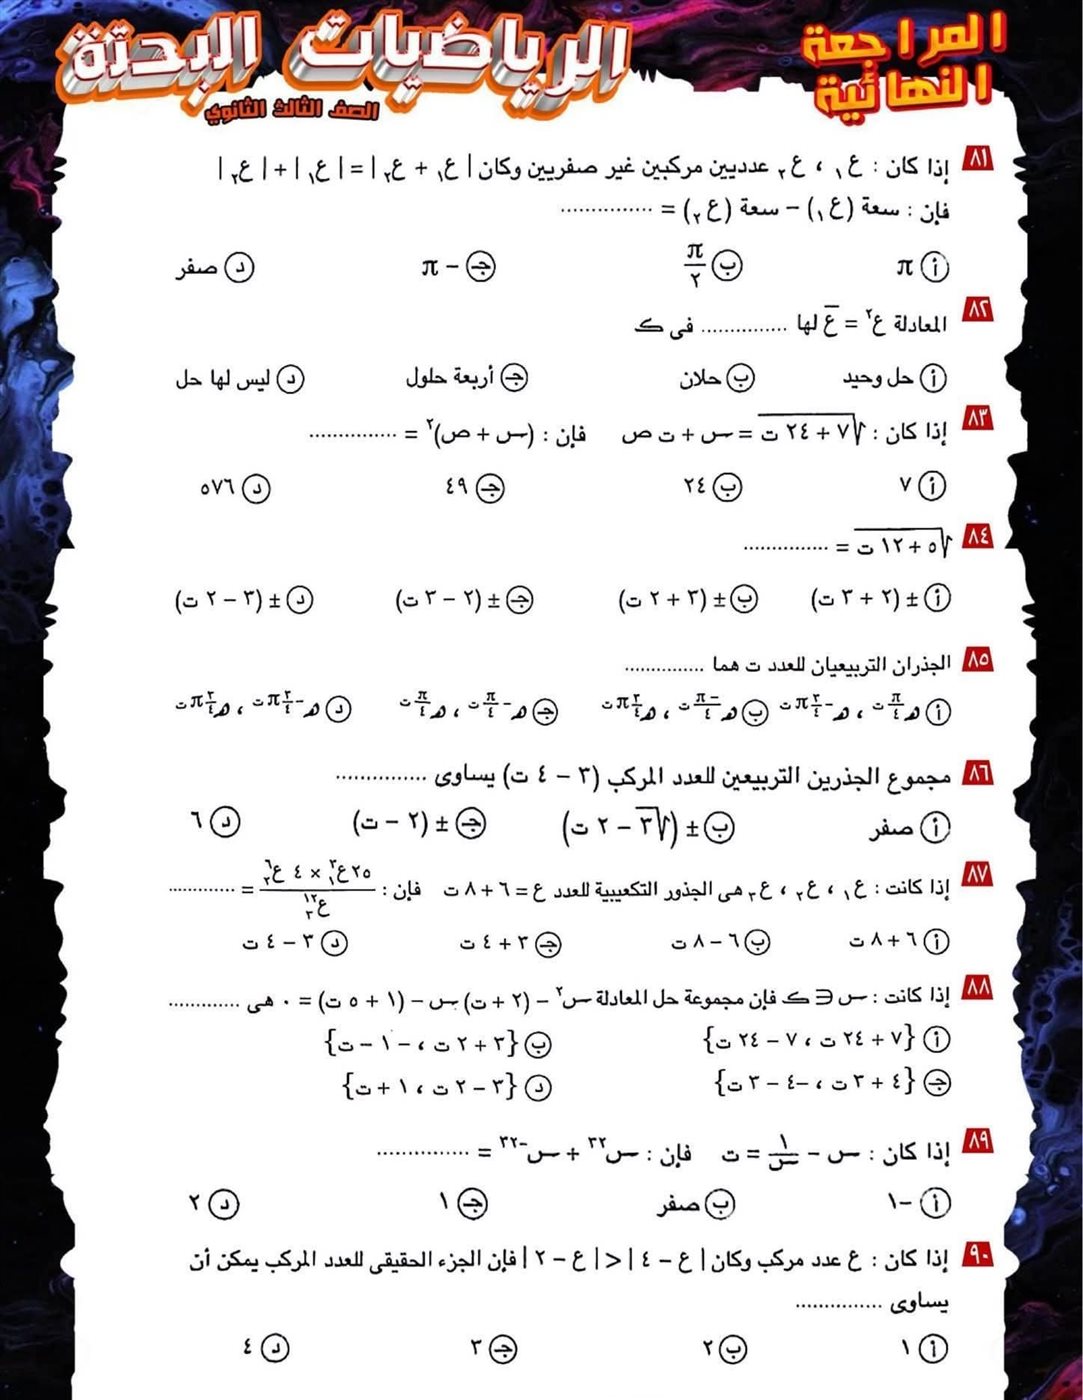 المراجعة النهائية
الرياضيات البحتة
الصف الثالث الثانوي
٨١ إذا كان : ع١ ، ع٢ عدديين مركبين غير صفريين وكان | ع١ + ع٢ | = | ع١ | + | ع٢ |
فإن : سعة (ع١) – سعة (ع٢) = ...............
أ π ب π/٢ جـ –π د صفر
٨٢ المعادلة ع٢ = ع̅ لها ............... فى ك
أ حل وحيد ب حلان جـ أربعة حلول د ليس لها حل
٨٣ إذا كان : √(٧ + ٢٤ ت) = س + ت ص فإن : (س + ص)٢ = ...............
أ ٧ ب ٢٤ جـ ٤٩ د ٥٧٦
٨٤ √(٥ + ١٢ ت) = ...............
أ ± (٢ + ٣ ت) ب ± (٣ + ٢ ت) جـ ± (٢ – ٣ ت) د ± (٣ – ٢ ت)
٨٥ الجذران التربيعيان للعدد ت هما ...............
أ هـ^(π/٤ ت) ، هـ^(–٣/٤ π ت) ب هـ^(–π/٤ ت) ، هـ^(٣/٤ π ت) جـ هـ^(–π/٤ ت) ، هـ^(π/٤ ت) د هـ^(–٣/٤ π ت) ، هـ^(٣/٤ π ت)
٨٦ مجموع الجذرين التربيعين للعدد المركب (٣ – ٤ ت) يساوى ...............
أ صفر ب ± (√٣ – ٢ ت) جـ ± (٢ – ت) د ٦
٨٧ إذا كانت : ع١ ، ع٢ ، ع٣ هى الجذور التكعيبية للعدد ع = ٦ + ٨ ت فإن : (٢٥ع١^٣ × ٤ ع٢^٦)/(ع٣^١٢) = ...............
أ ٦ + ٨ ت ب ٦ – ٨ ت جـ ٣ + ٤ ت د ٣ – ٤ ت
٨٨ إذا كانت : س ∈ ك فإن مجموعة حل المعادلة س٢ – (٢ + ت) س – (١ + ٥ ت) = ٠ هى ...............
أ {٧ + ٢٤ ت ، ٧ – ٢٤ ت} ب {٣ + ٢ ت ، –١ – ت}
جـ {٤ + ٣ ت ، –٤ – ٣ ت} د {٣ – ٢ ت ، ١ + ت}
٨٩ إذا كان : س – ١/س = ت فإن : س٣٢ + س–٣٢ = ...............
أ –١ ب صفر جـ ١ د ٢
٩٠ إذا كان : ع عدد مركب وكان | ع – ٤ | < | ع – ٢ | فإن الجزء الحقيقى للعدد المركب يمكن أن
يساوى ...............
أ ١ ب ٢ جـ ٣ د ٤